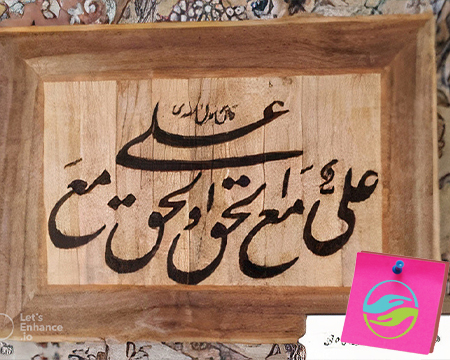 قال رسول الله
علیٌّ مَع الحق و الحق مَع
علی
Let's
Enhance
.io